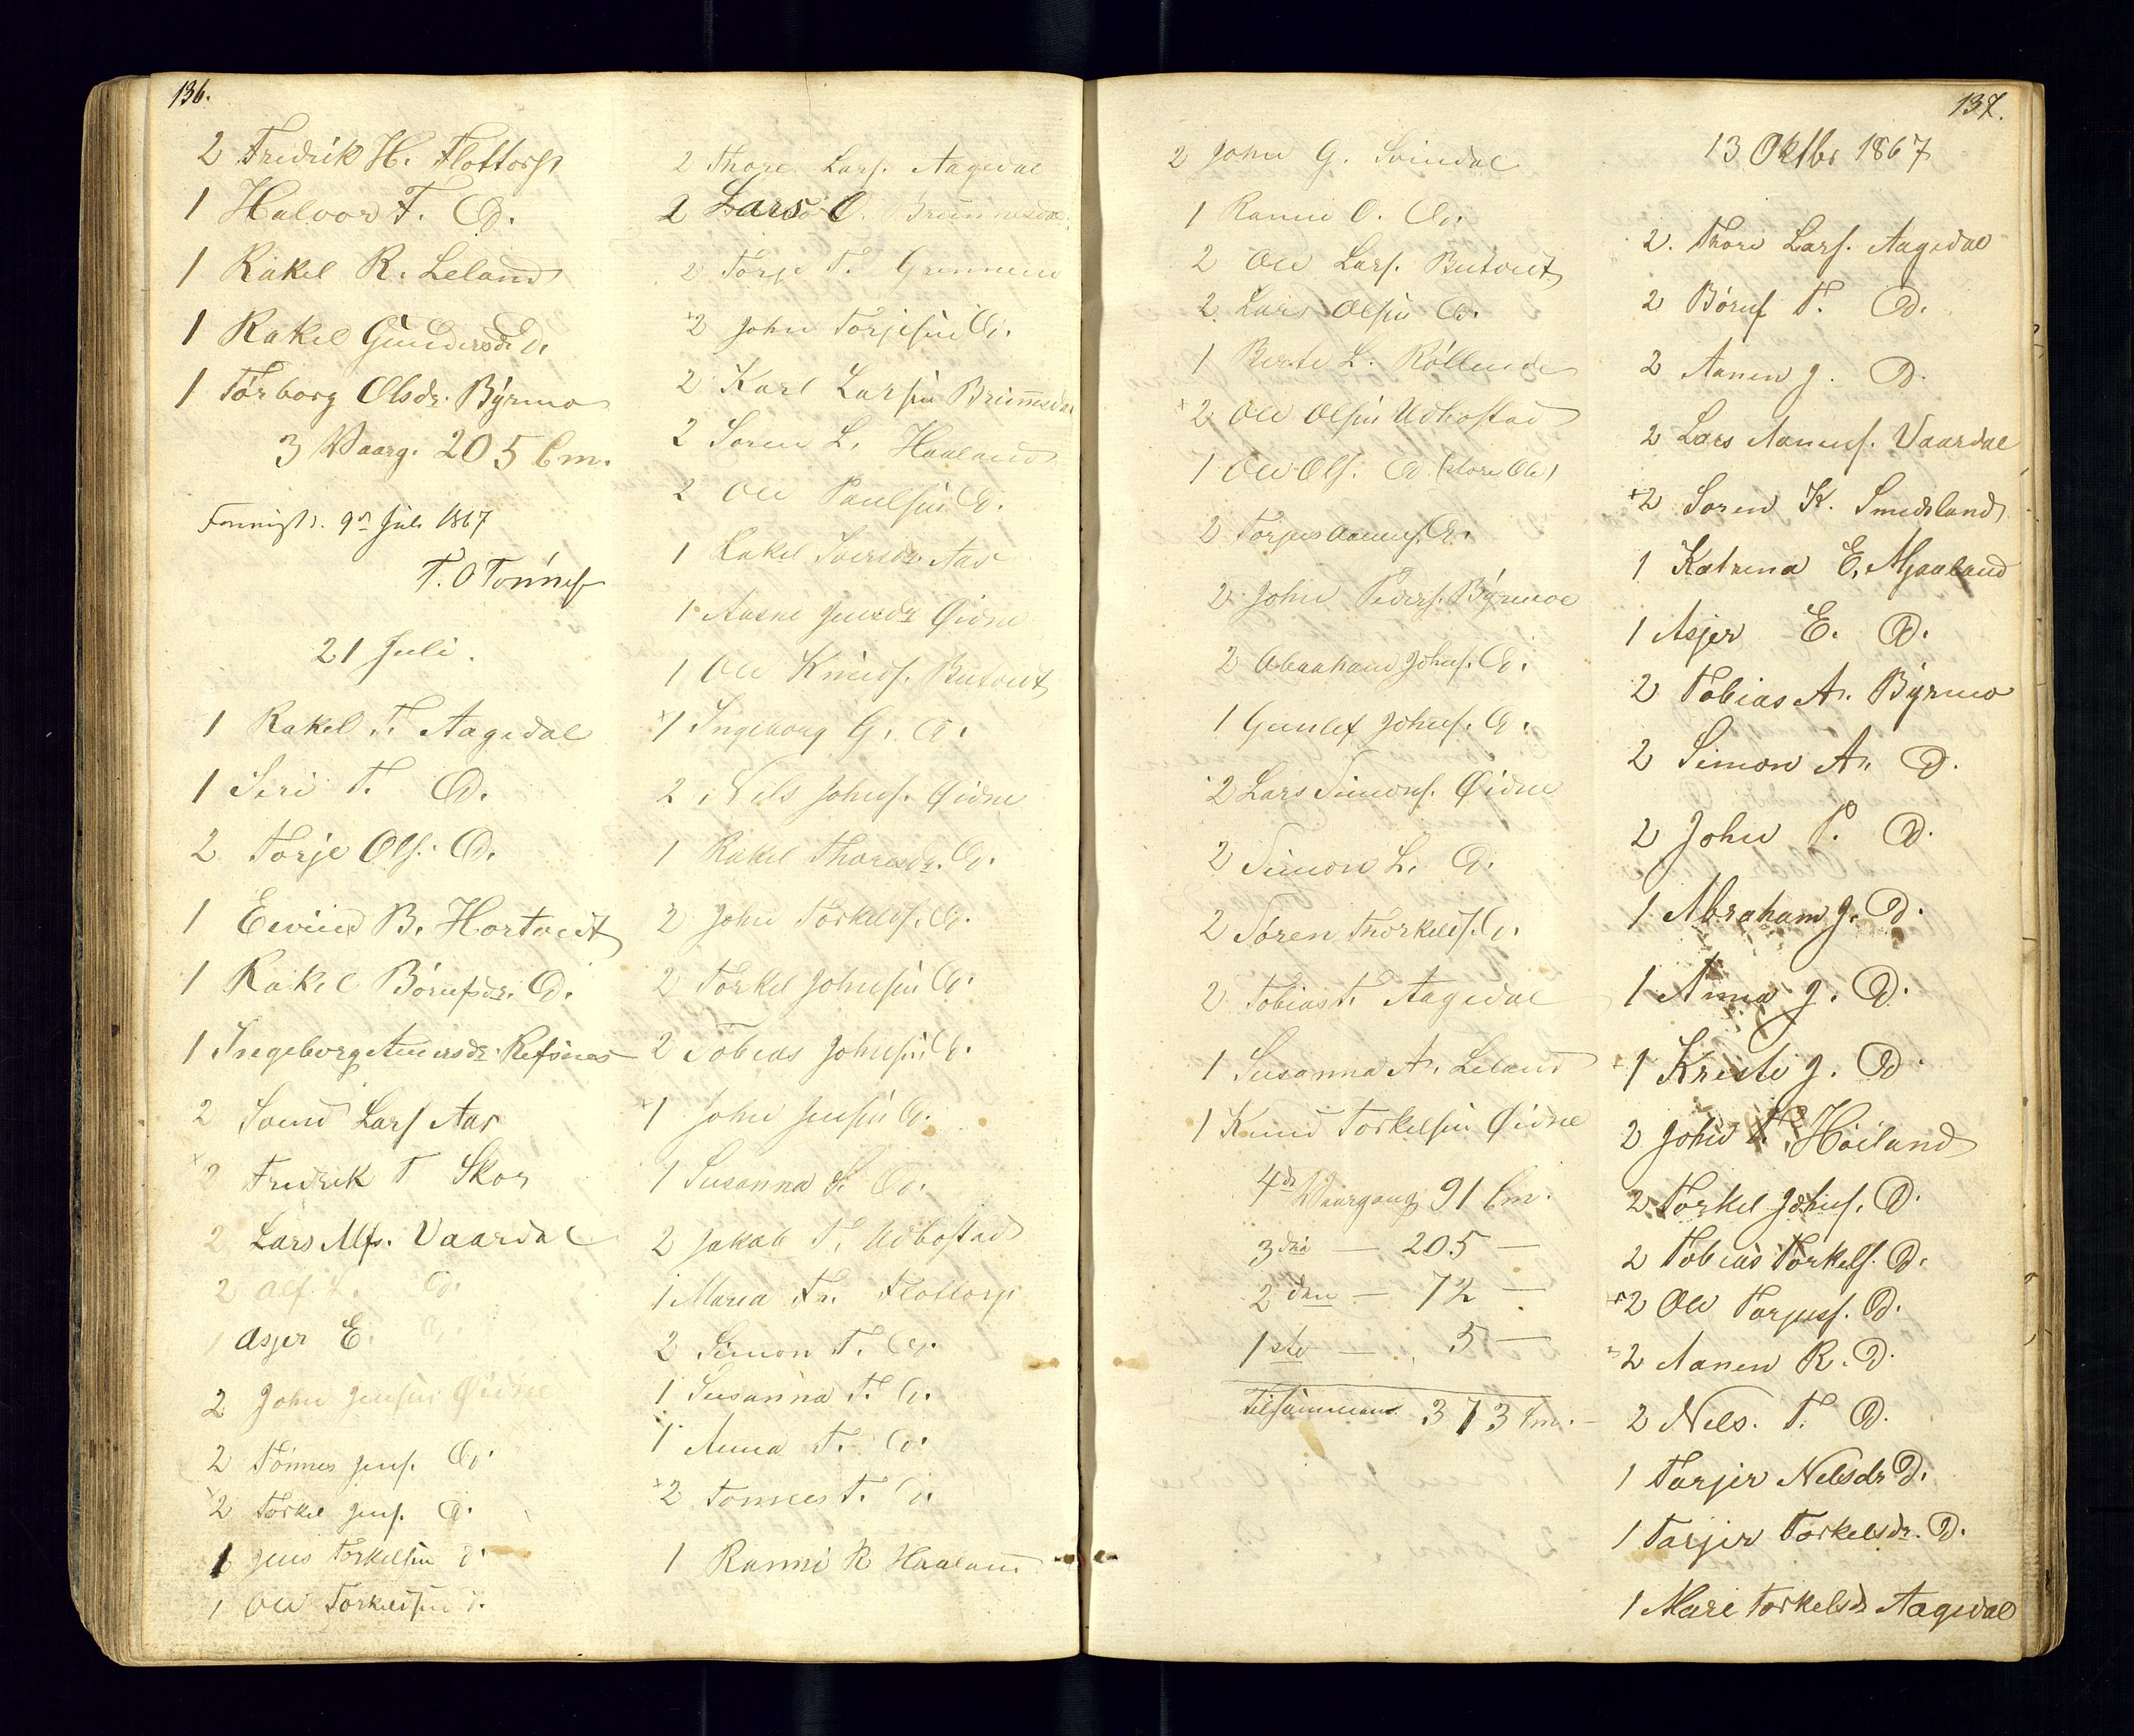 136.
2 Fredrik H. Flottorp
1 Halvor F. D.
1 Rakel R. Leland
1 Rakel Gundersdr D.
1 Torborg Olsdr. Byrmo
3 Vaarg. 205 Cm.
9de Juli 1867
T. O Tønnes
21 Juli.
1 Rakel T. Aagedal
1 Siri T. D.
2 Torje Ols. D.
1 Eevind B. Hortvedt
1 Rakel Børufsdr. D.
1 Ingeborg Refsnes
2 Svend Lars Aas
2 Fredrik T Skor
2 Lars Alfs. Vaardal
2 Alf. L. D.
1 Asjer E. D.
2 John Jensen Øidne
2 Tønnes Jens. D.
2 Torkel Jens. D.
1 Jens Torkelsen D.
1 Ole Torkelsen D.
2 Thore Lars. Aagedal
2 Lars O. Brunnesdal
2 Torje T.
2 John Torjesen D.
2 Karl Larsen Brunnesdal
2 Søren L. Haaland
2 Ole Paulsen D.
1 Rakel Sversdr. Aas
1 Aasne Jensdr Øidne
1 Ole Knuds. Butvedt
1 Ingeborg G. D.
2 Nils Johns. Øidne
1 Rakel Thoresdr. D.
2 John Torkels. D.
2 Torkel Johnsen D.
2 Tobias Johnsen D.
1 John Jensen D.
1 Susanna S. D.
2 Jakob T. Udbostad
1 Maria Fr. Flottorp
2 Simon T. D.
1 Susanna T. D.
1 Anna T. D.
2 Tønnes T. D.
1 Ranni R Haaland
2 John G. Svindal
1 Ranni O. D.
2 Ole Lars. Butvedt
2 Lars Olsen D.
1 Berte L. Røllende
2 Ole Olsen Udbostad
1 Ole Ols. D. (store Ole)
2 Torjus Aanens. D.
2 John Peders. Byrmoe
2 Abraham Johns. D.
1 Gunlef Johns. D.
2 Lars Simons. Øidne
2 Simon L. D.
2 Søren Thorkels. D.
2 Tobias T. Aagedal
1 Susanna A. Leland
1 Knud Torkelsen Øidne
4de Vaargang 91 Cm.
3die — 205 —
2den — 72 —
1ste — 5 —
Tilsammen 373 Cm. —
137.
13 Oktbr 1867
2. Thore Lars. Aagedal
2 Børuf T. D.
2 Aanen J. D.
2 Lars Aanens. Vaardal
2 Soren K. Smedsland
1 Katrina E. Mjaaland
1 Asjer E. D.
2 Tobias A. Byrmo
2 Simon A. D.
2 John P. D.
1 Abraham J. D.
1 Anna J. D.
1 Kristi J. D.
2 John T. Høiland
2 Torkel Johns. D.
2 Tobias Torkels. D.
2 Ole Torjuss. D.
2 Aanen R. D.
2 Nels. T. D.
1 Tarjer Nelsdr D.
1 Tarjer Torkelsdr. D.
1 Mari Torkelsdr Aagedal